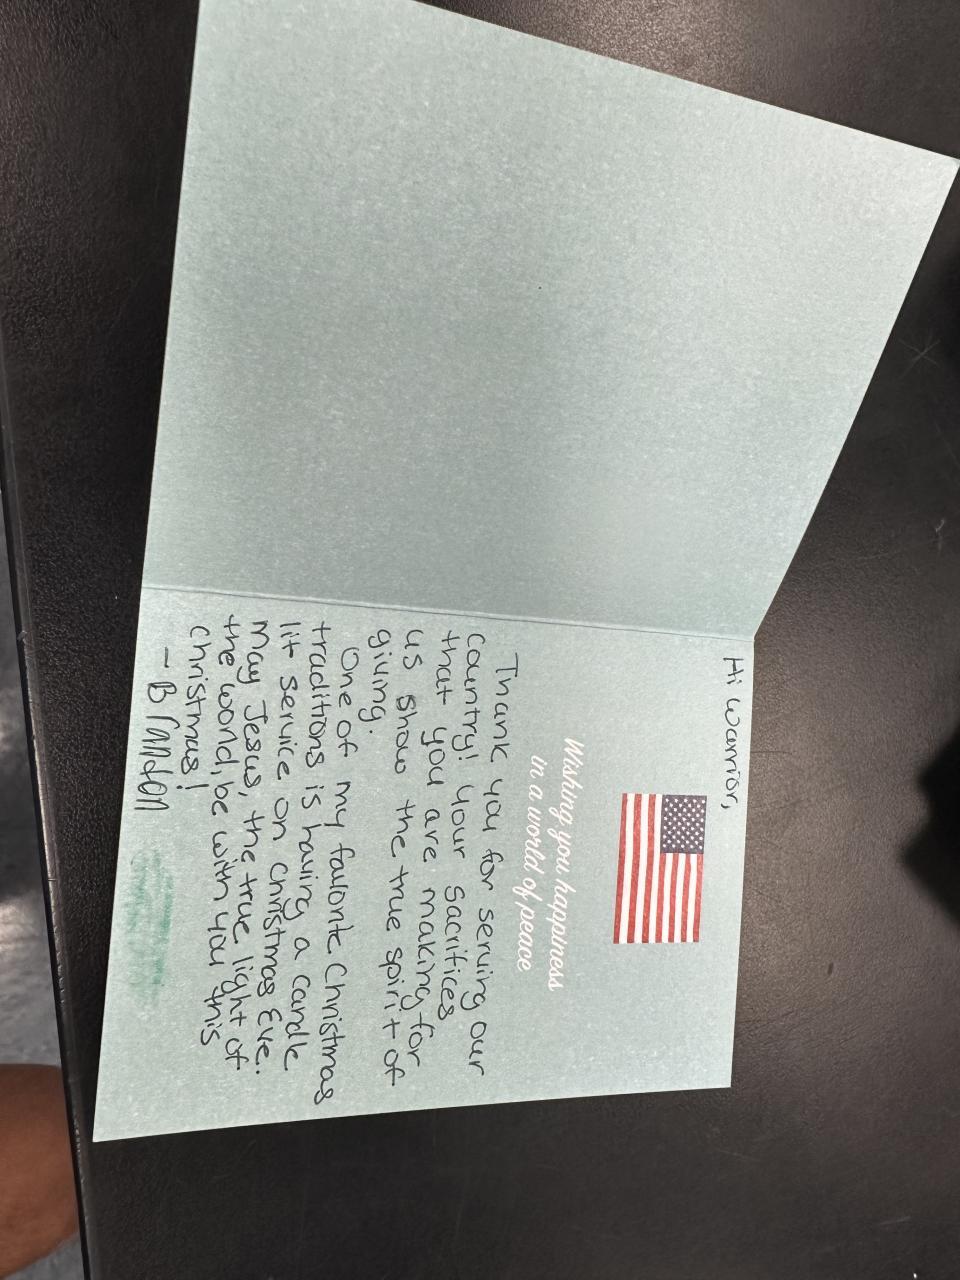 Hi Warrior,
Wishing you happiness
in a world of peace
Thank you for serving our
country! Your sacrifices
that you are making for
us show the true spirit of
giving.
One of my favorite Christmas
traditions is having a candle
lit service on Christmas Eve.
May Jesus, the true light of
the world, be with you this
Christmas!
- Brandon